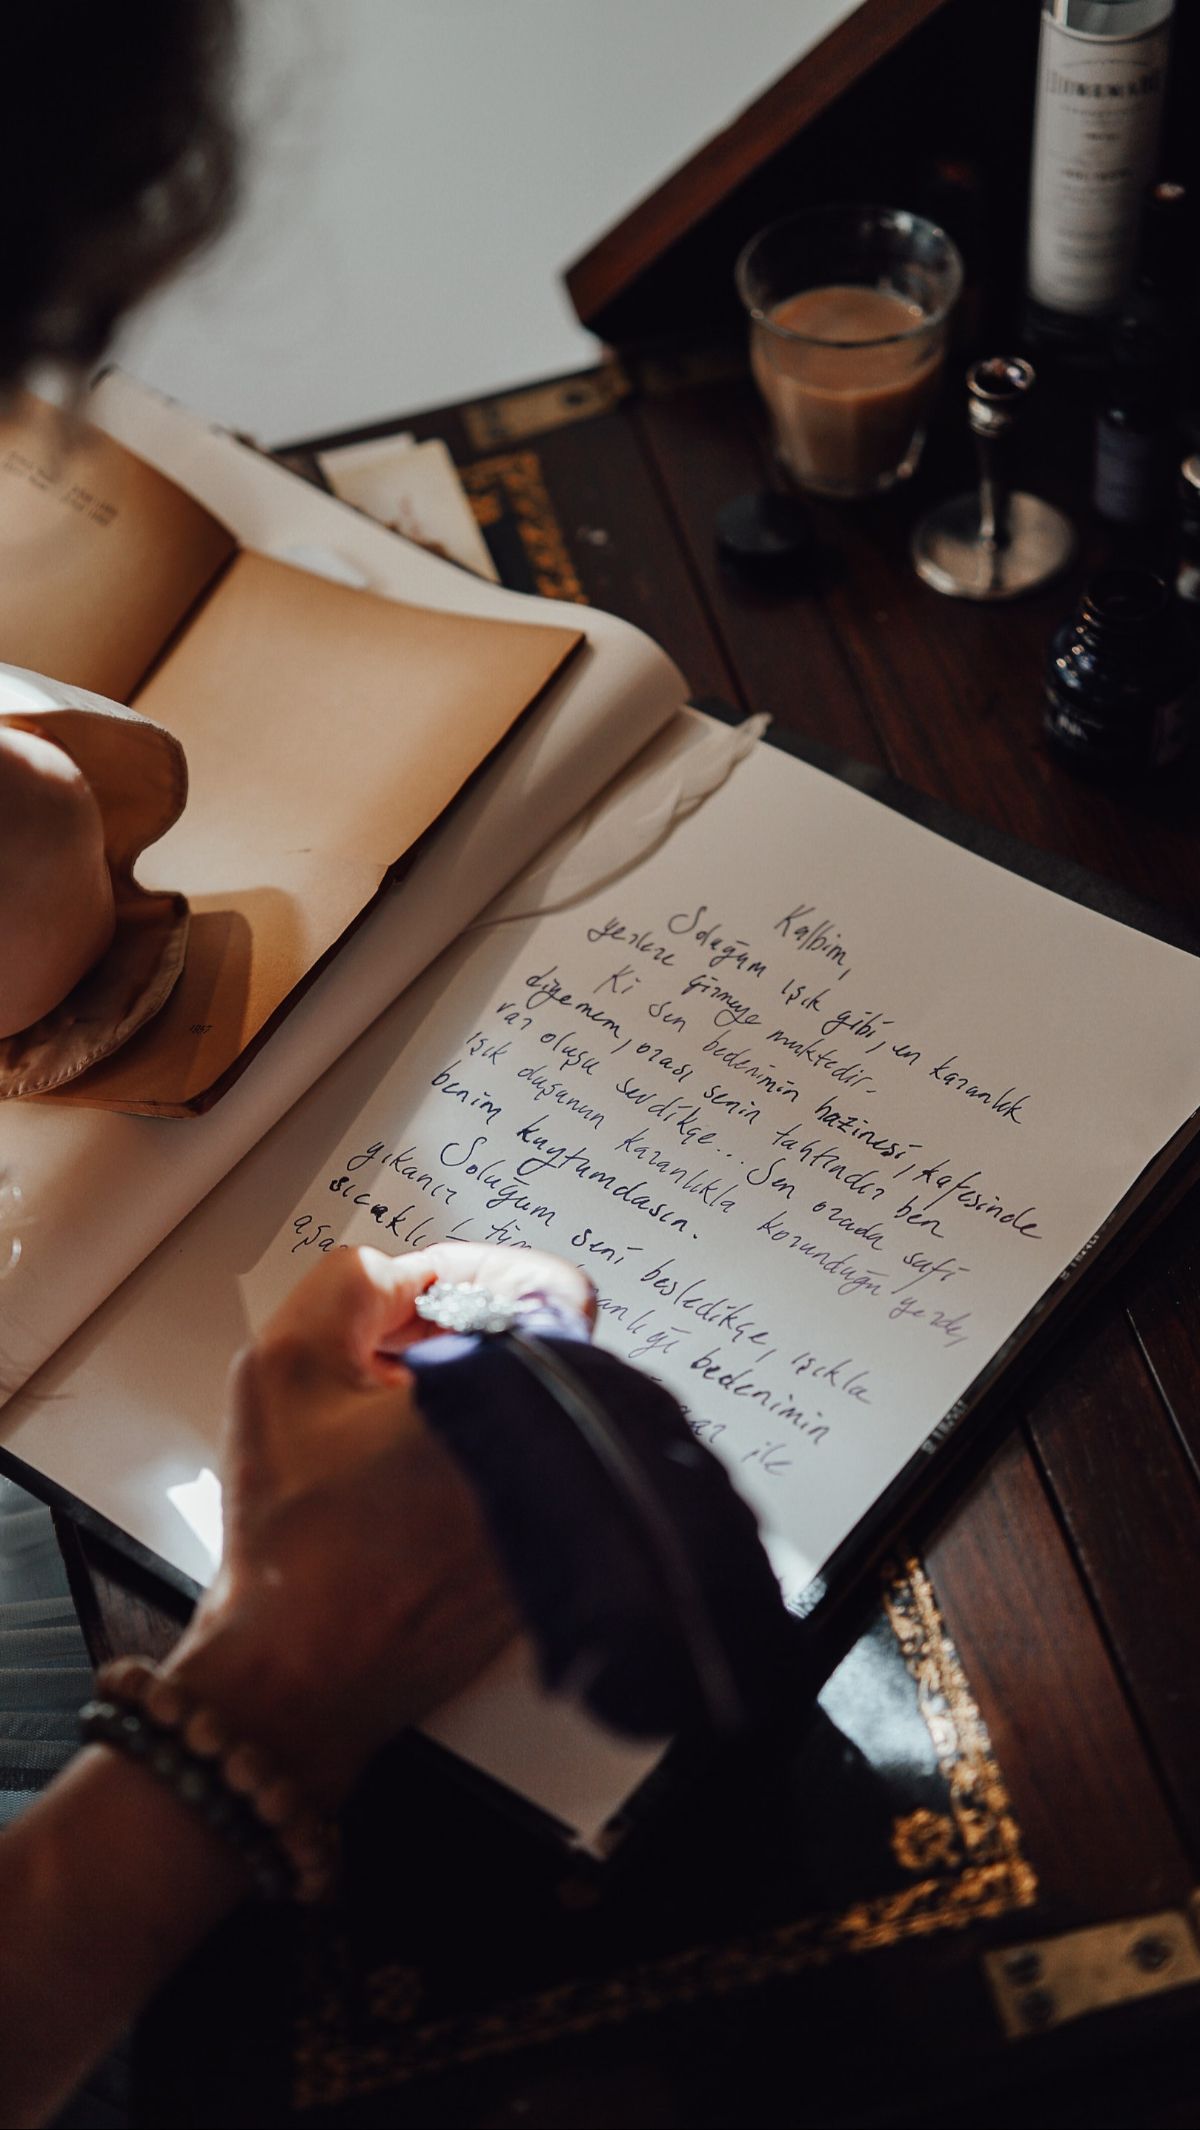 Kalbim,
Soluğum ışık gibi, en karanlık
yerlere girmeye muktedir.
Ki sen bedenimin hazinesi, kafesinde
diyemem, orası senin tahtındır ben
var oluşu sevdikçe... Sen orada safi
ışık duşunun karanlıkla korunduğu yerde,
benim kuytumdasın.
Soluğum seni besledikçe, ışıkla
yıkanır tüm bedenimin
sıcaklı
ile
1957